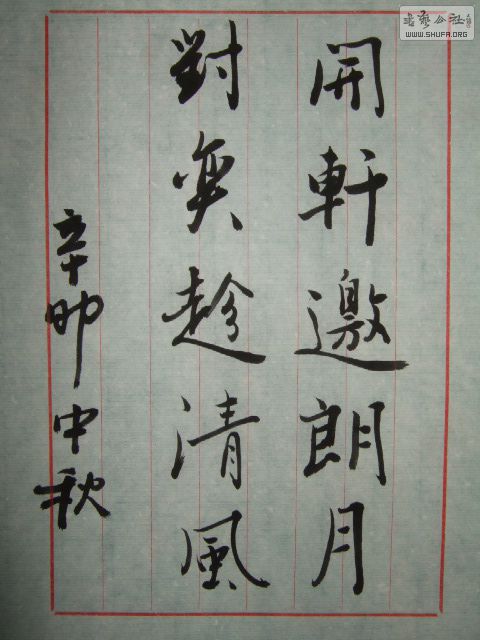 開軒邀朗月
對奕趁清風
辛卯中秋
WWW.SHUFA.ORG